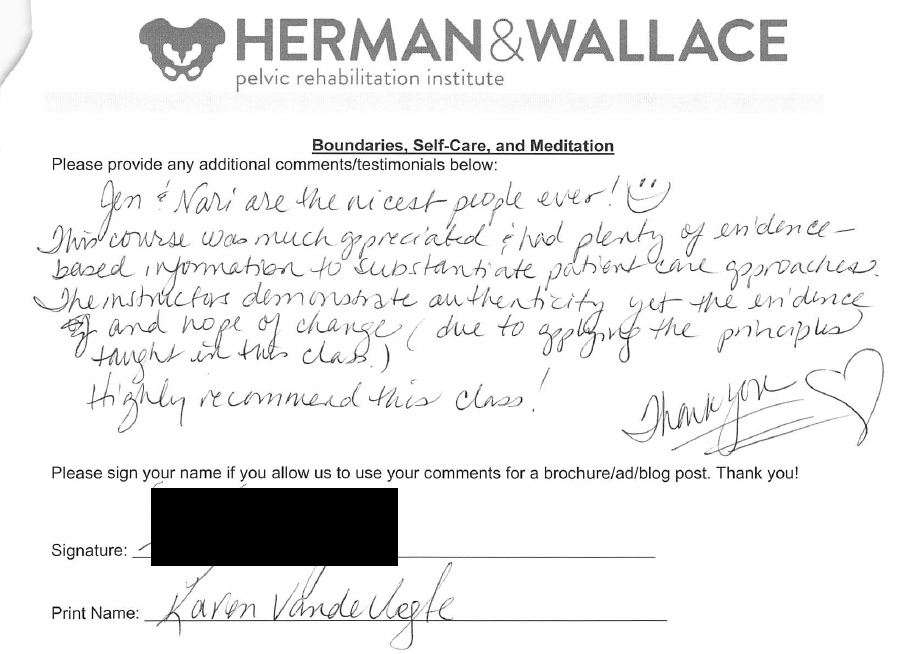 HERMAN&WALLACE
pelvic rehabilitation institute
Boundaries, Self-Care, and Meditation
Please provide any additional comments/testimonials below:
Jen & Nari are the nicest people ever!
This course was much appreciated & had plenty of evidence-
based information to substantiate patient care approaches.
The instructors demonstrate authenticity yet the evidence
and hope of change (due to applying the principles
taught in this class.)
Highly recommend this class!
Thank you
Please sign your name if you allow us to use your comments for a brochure/ad/blog post. Thank you!
Signature:
Print Name: Karen Vande Vegte